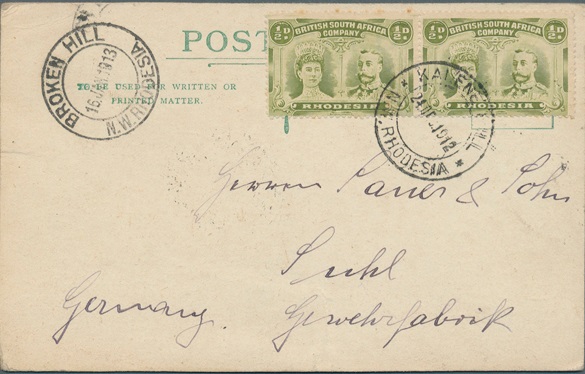 BROKEN HILL
16 JAN 1913
N.W. RHODESIA
POST
TO BE USED FOR WRITTEN OR
PRINTED MATTER.
½D. BRITISH SOUTH AFRICA COMPANY ½D.
RHODESIA
½D. BRITISH SOUTH AFRICA COMPANY ½D.
RHODESIA
1912
RHODESIA
Herren Sauer & Sohn
Suhl
Germany. Gewehrfabrik